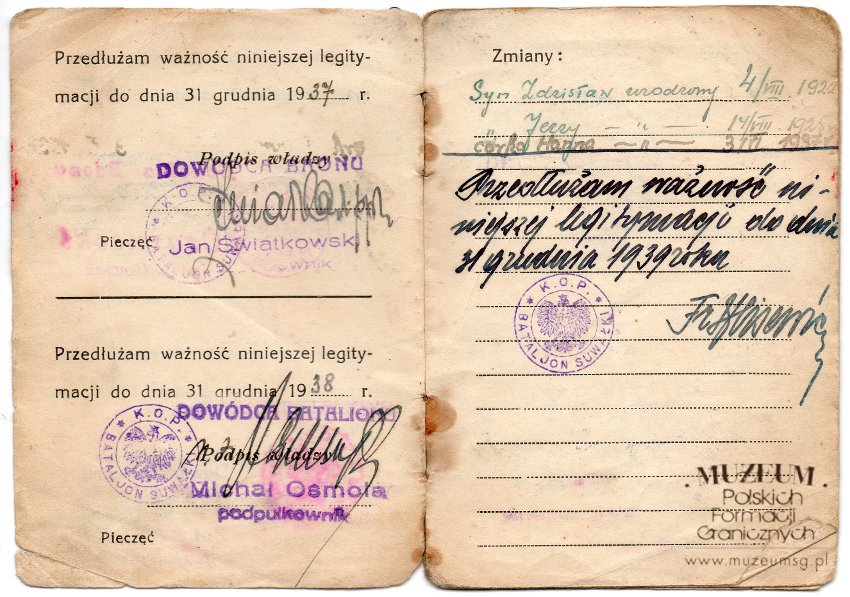 Przedłużam ważność niniejszej legity-
macji do dnia 31 grudnia 1937 r.
Podpis władzy
DOWÓDCA BAONU
K.O.P.
BATALJON SUWAŁKI
Pieczęć
Jan Świątkowski
Przedłużam ważność niniejszej legity-
macji do dnia 31 grudnia 1938 r.
DOWÓDCA BATALIONU
K.O.P.
BATALJON SUWAŁKI
Podpis władzy
Michał Osmola
podpułkownik
Pieczęć
Zmiany:
Syn Zdzisław urodzony 4/VIII 1922
" Jerzy — " — 14/VIII
córka Hanna — " —
Przedłużam ważność ni-
niejszej legitymacji do dnia
31 grudnia 1939 roku
K.O.P.
BATALJON SUWAŁKI
MUZEUM
Polskich
Formacji
Granicznych
www.muzeumsg.pl